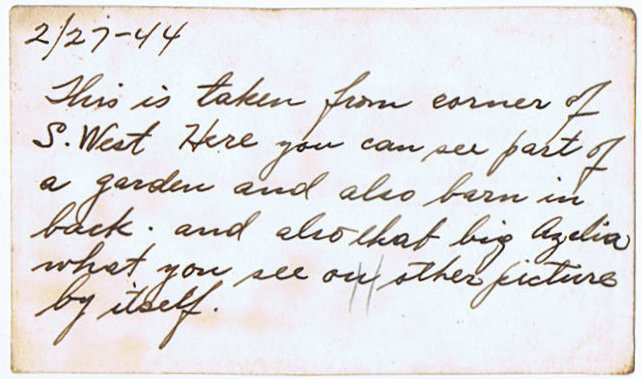 2/27-44
This is taken from corner of
S. West Here you can see part of
a garden and also barn in
back. and also that big Azelia
what you see on other picture
by itself.